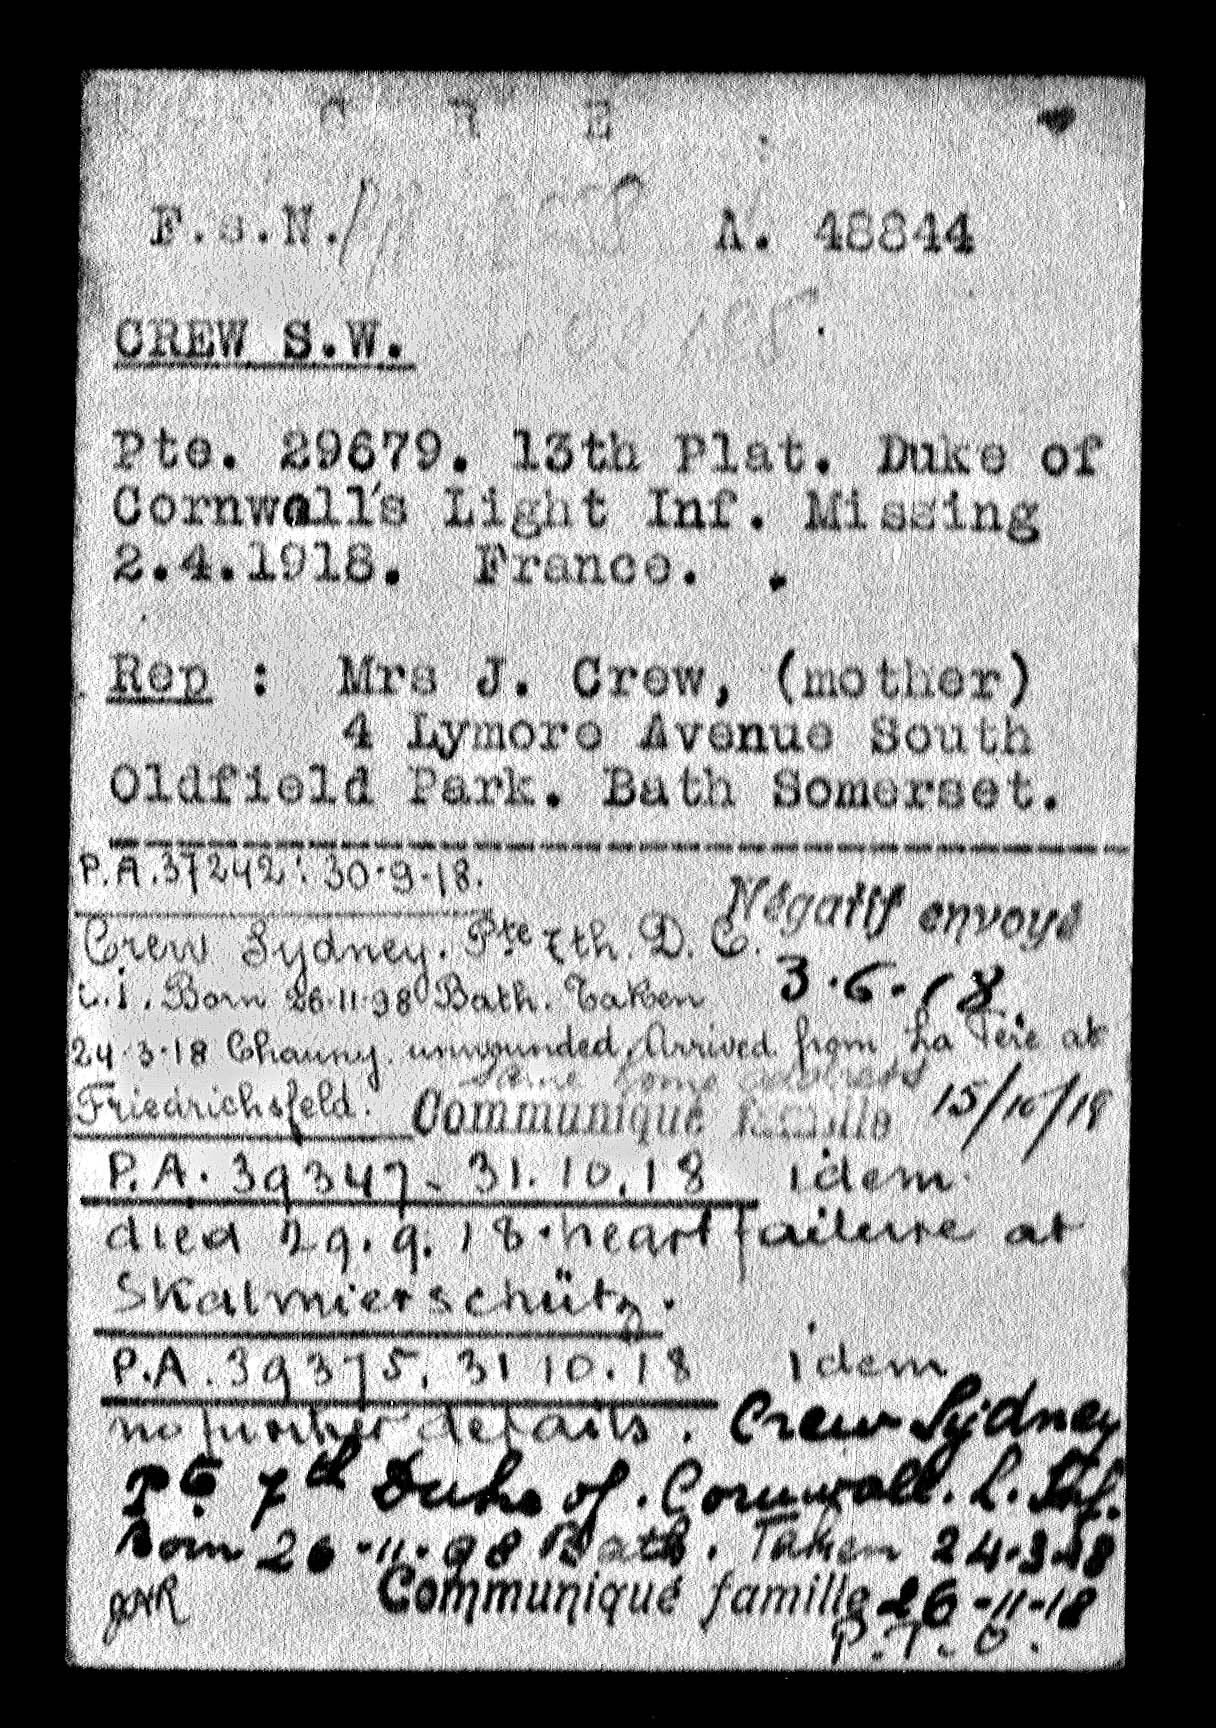 C R E
F.s.N. A. 48844
CREW S.W.
Pte. 29679. 13th Plat. Duke of
Cornwall's Light Inf. Missing
2.4.1918. France.
Rep : Mrs J. Crew, (mother)
4 Lymore Avenue South
Oldfield Park. Bath Somerset.
P.A. 37242: 30.9.18.
Négatif envoyé
Crew Sydney. Pte 7th. D. C.
3.6.18.
L.i. Born 26.11.98 Bath. Taken
24.3.18 Chauny. unwounded, Arrived from La Fère at
Same home address
Friedrichsfeld. Communiqué famille 15/10/18
P.A. 39347. 31.10.18 idem.
died 29.9.18. heart failure at
Skalmierschütz.
P.A. 39375. 31 10.18 idem
no further details. Crew Sydney
Pte 7th Duke of. Cornwall. L. Inf.
Born 26.11.98 Bath. Taken 24.3.18
Communiqué famille 26-11-18
P.T.O.